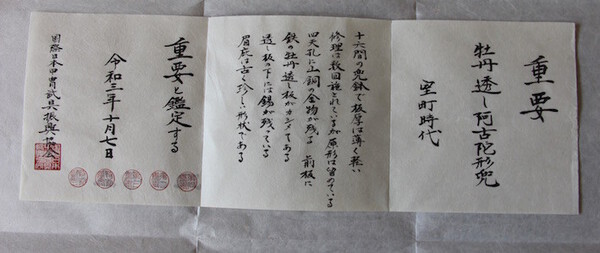 重要
牡丹透し阿古陀形兜
室町時代
十六間の兜鉢で板厚は薄く軽い
修理は数回施されているが原形は留めている
四天孔に山銅の金物が残る 前板に
鉄の牡丹透し板がカシメてある
透し板の下には錫が残っている
眉庇は古く珍しい形状である
重要と鑑定する
令和三年十月七日
国際日本甲冑武具振興協会